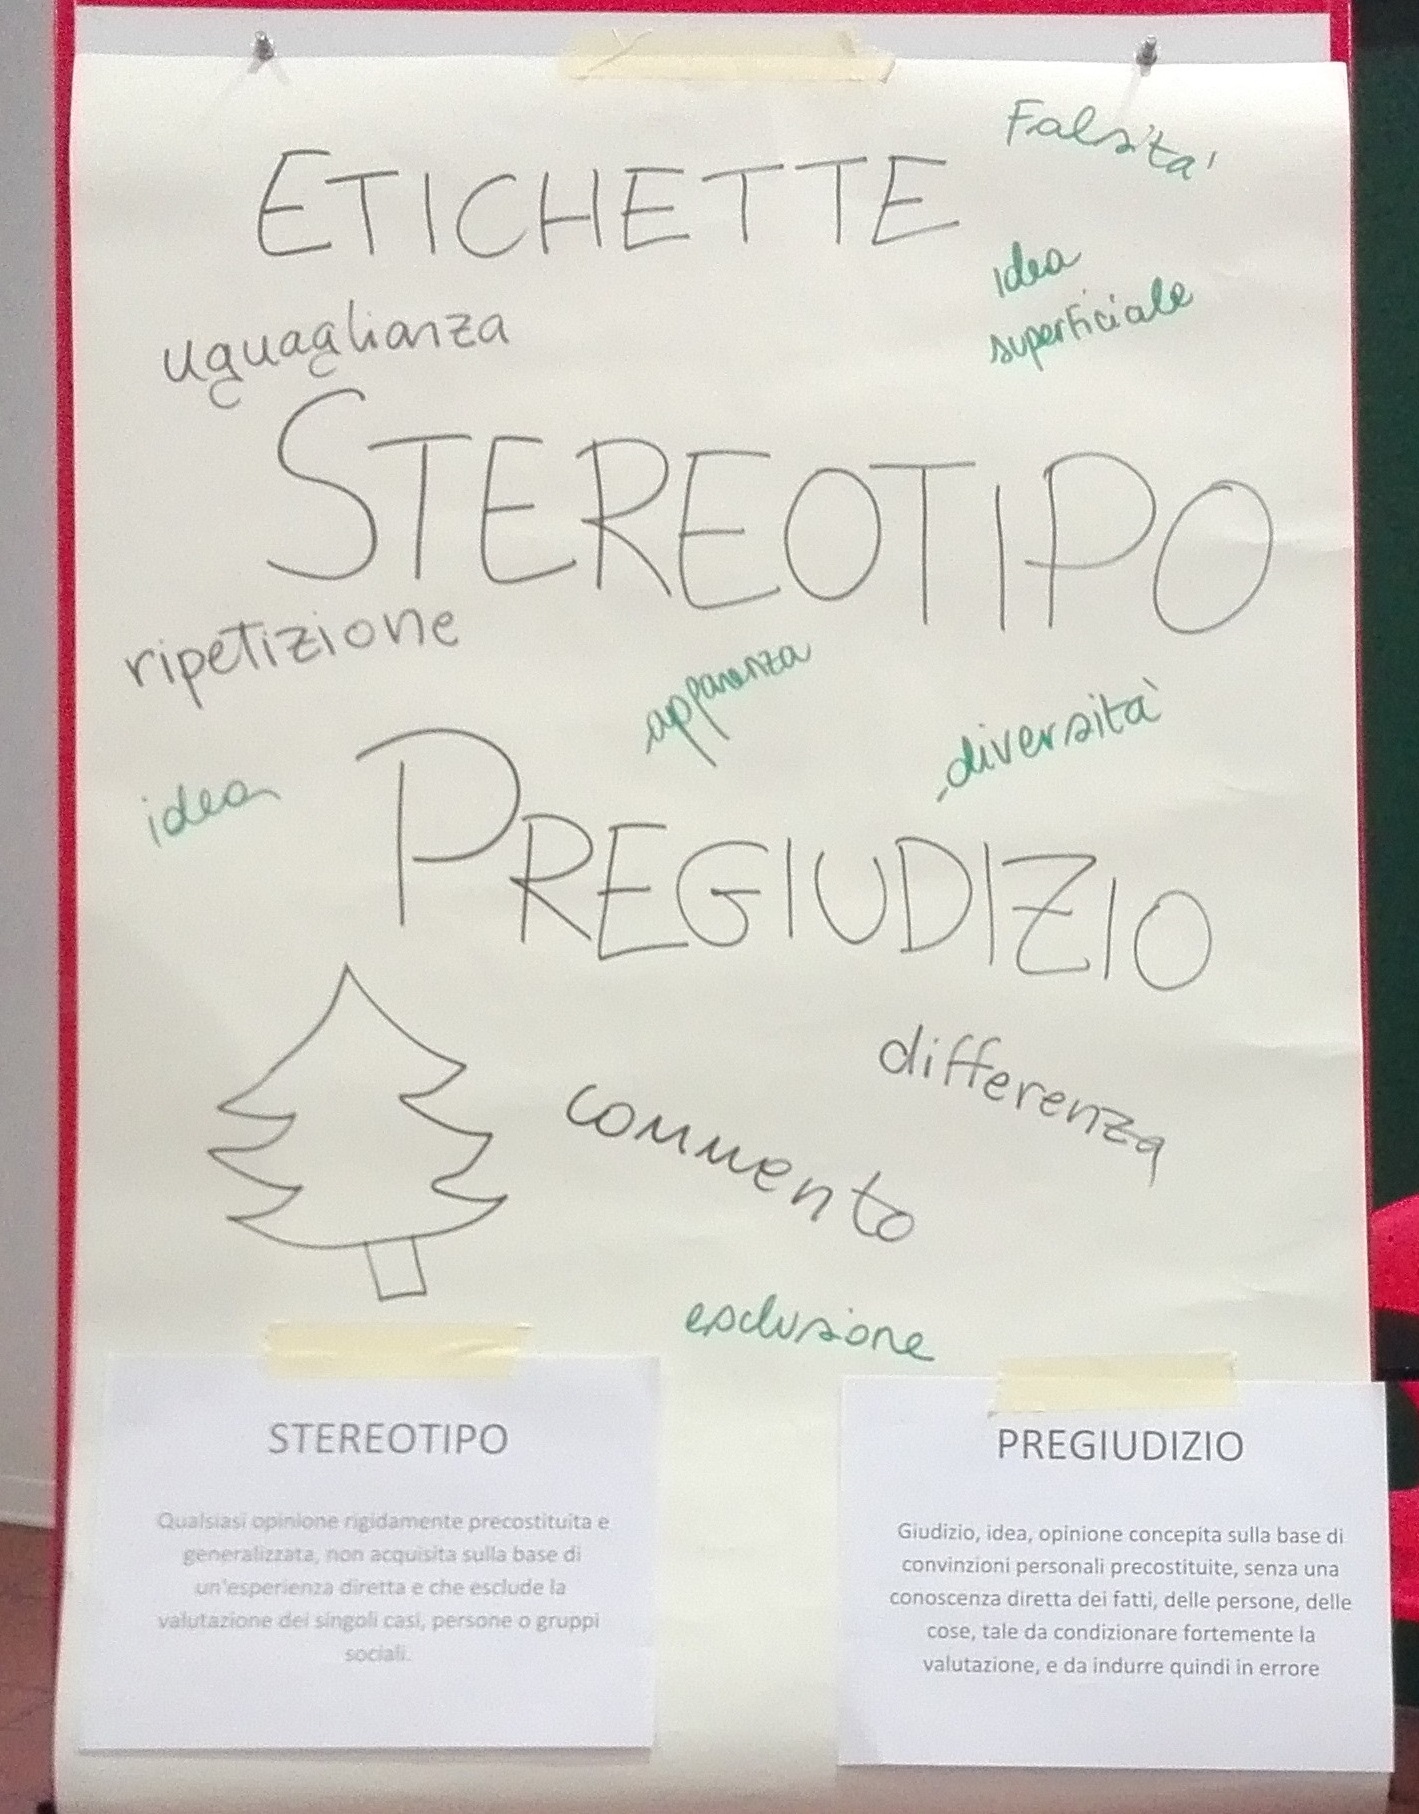 Falsita'
ETICHETTE
idea
superficiale
uguaglianza
STEREOTIPO
ripetizione
apparenza
diversità
idea
PREGIUDIZIO
differenza
commento
esclusione
STEREOTIPO
Qualsiasi opinione rigidamente precostituita e
generalizzata, non acquisita sulla base di
un'esperienza diretta e che esclude la
valutazione dei singoli casi, persone o gruppi
sociali.
PREGIUDIZIO
Giudizio, idea, opinione concepita sulla base di
convinzioni personali precostituite, senza una
conoscenza diretta dei fatti, delle persone, delle
cose, tale da condizionare fortemente la
valutazione, e da indurre quindi in errore